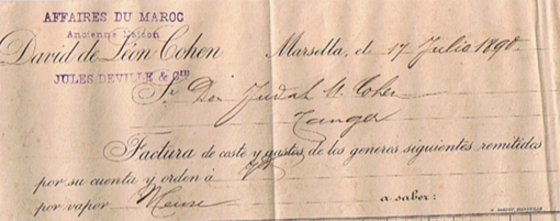 AFFAIRES DU MAROC
Ancienne Maison
David de Léon Cohen
JULES DEVILLE & Cie
Marsella, el 17 Julio 1890
Sr. Don Judah Cohen
Tanger
Factura de coste y gastos de los generos siguientes remitidos
por su cuenta y orden á
por vapor Meuse a saber: